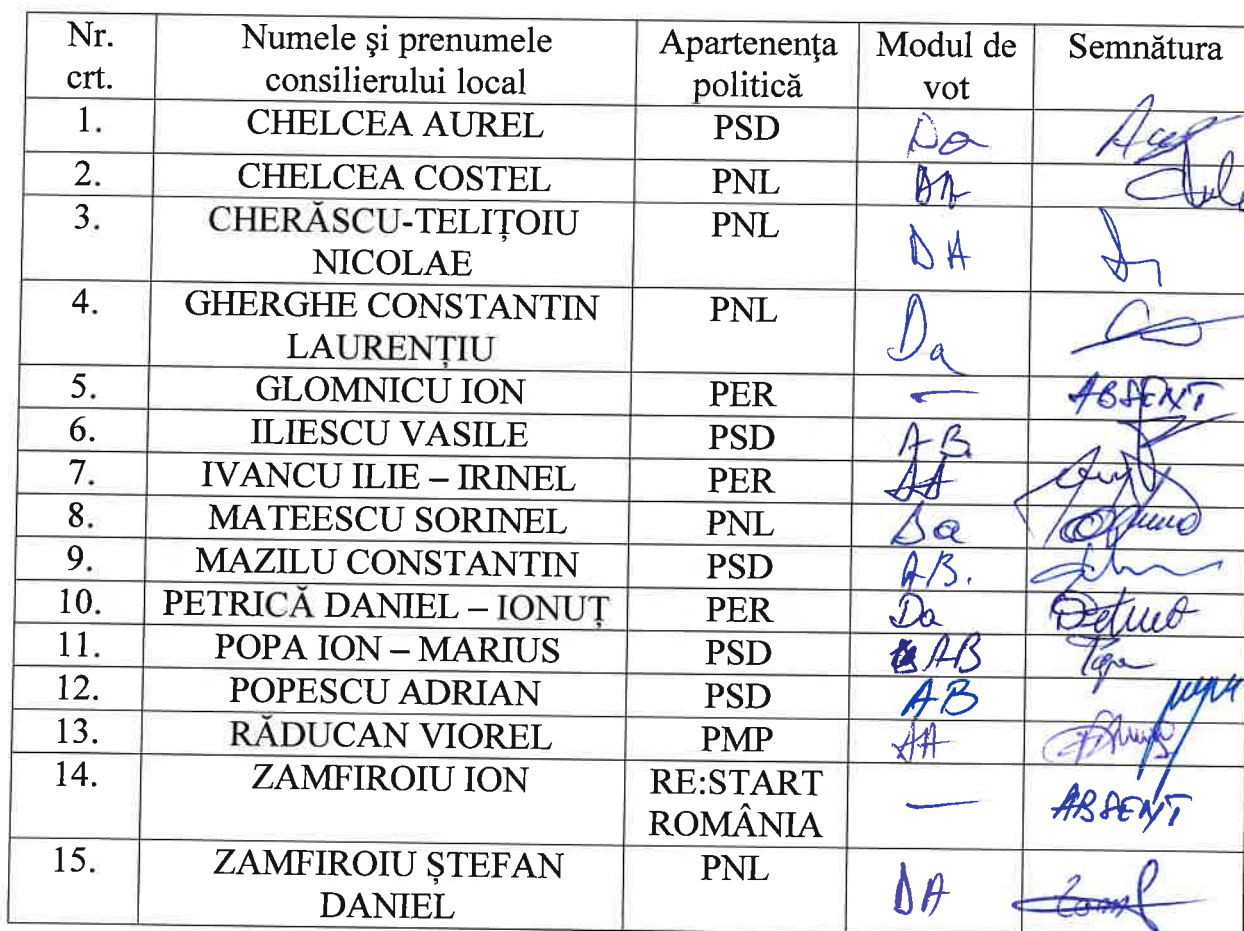 Nr. crt. Numele şi prenumele consilierului local Apartenenţa politică Modul de vot Semnătura
1. CHELCEA AUREL PSD Da
2. CHELCEA COSTEL PNL DA
3. CHERĂSCU-TELIȚOIU NICOLAE PNL DA
4. GHERGHE CONSTANTIN LAURENȚIU PNL Da
5. GLOMNICU ION PER — ABSENT
6. ILIESCU VASILE PSD AB.
7. IVANCU ILIE – IRINEL PER DA
8. MATEESCU SORINEL PNL Da
9. MAZILU CONSTANTIN PSD AB.
10. PETRICĂ DANIEL – IONUȚ PER Da
11. POPA ION – MARIUS PSD AB Popa
12. POPESCU ADRIAN PSD AB
13. RĂDUCAN VIOREL PMP DA
14. ZAMFIROIU ION RE:START ROMÂNIA — ABSENT
15. ZAMFIROIU ȘTEFAN DANIEL PNL DA